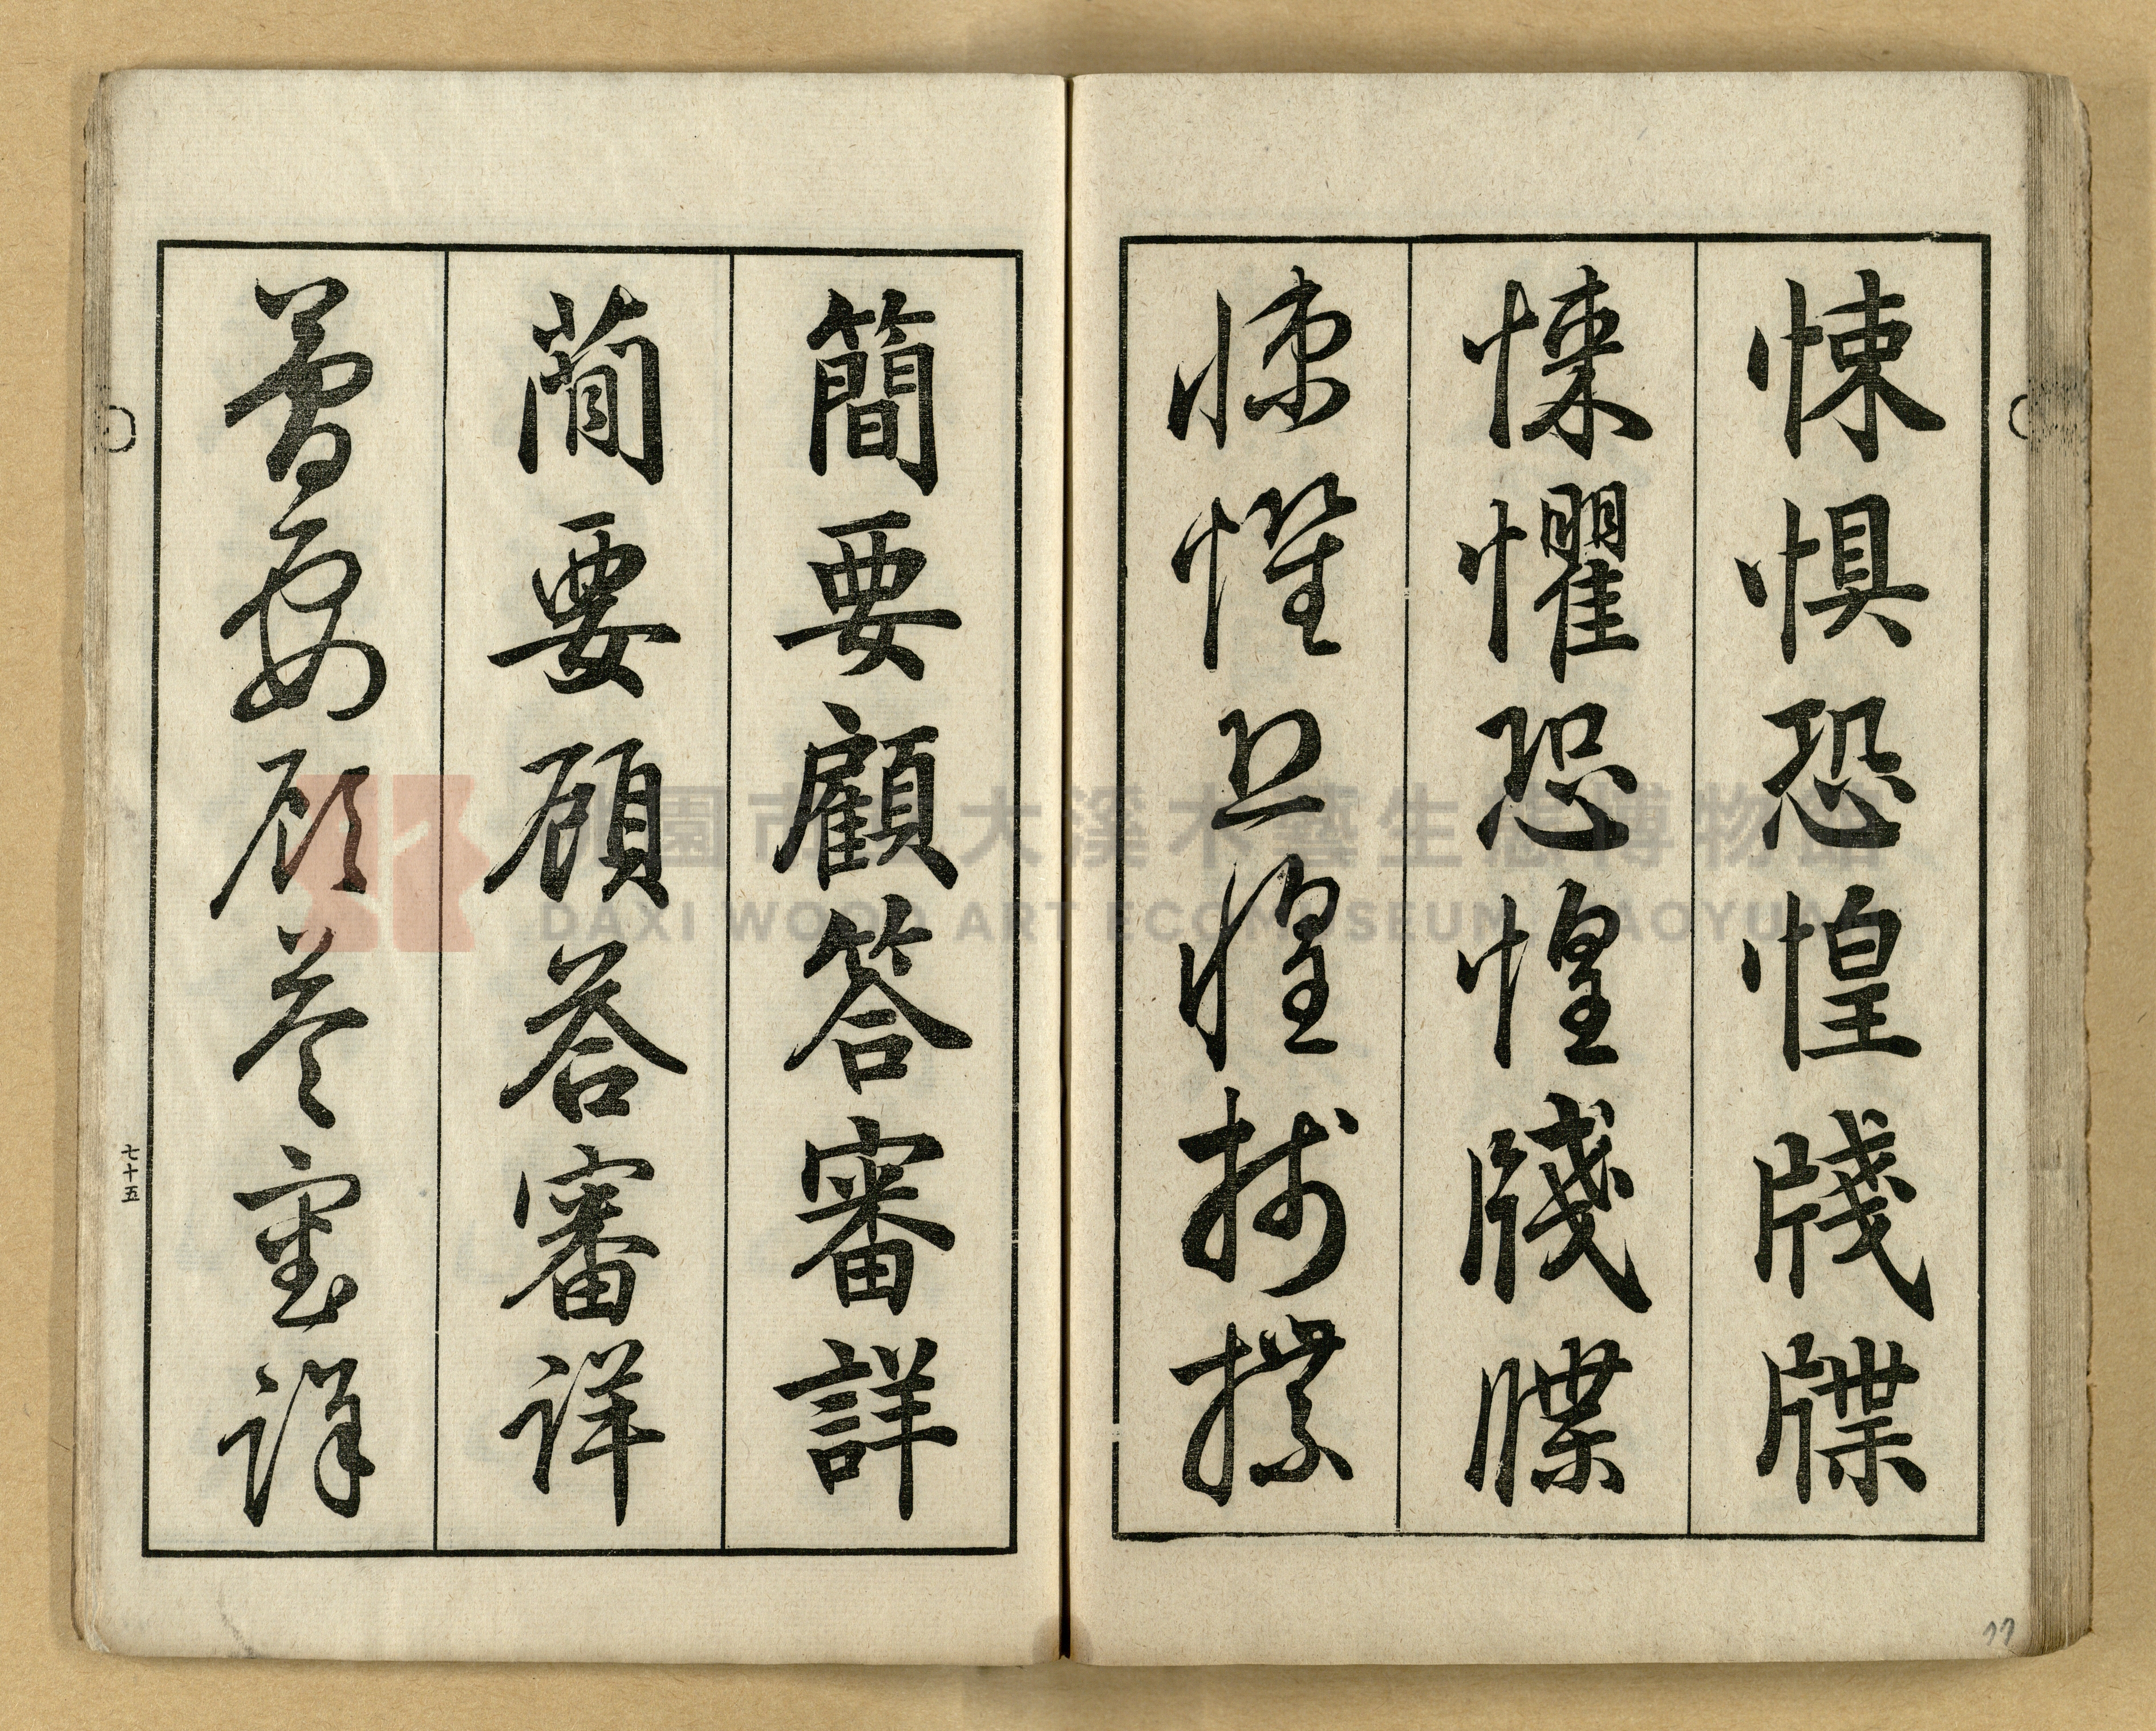 悚惧恐惶牋牒
悚懼恐惶牋牒
悚懼恐惶牋牒
簡要顧答審詳
簡要顧答審詳
簡要顧答審詳
七十五
桃園市立大溪木藝生態博物館
DAXI WOOD ART ECOMUSEUM, TAOYUAN